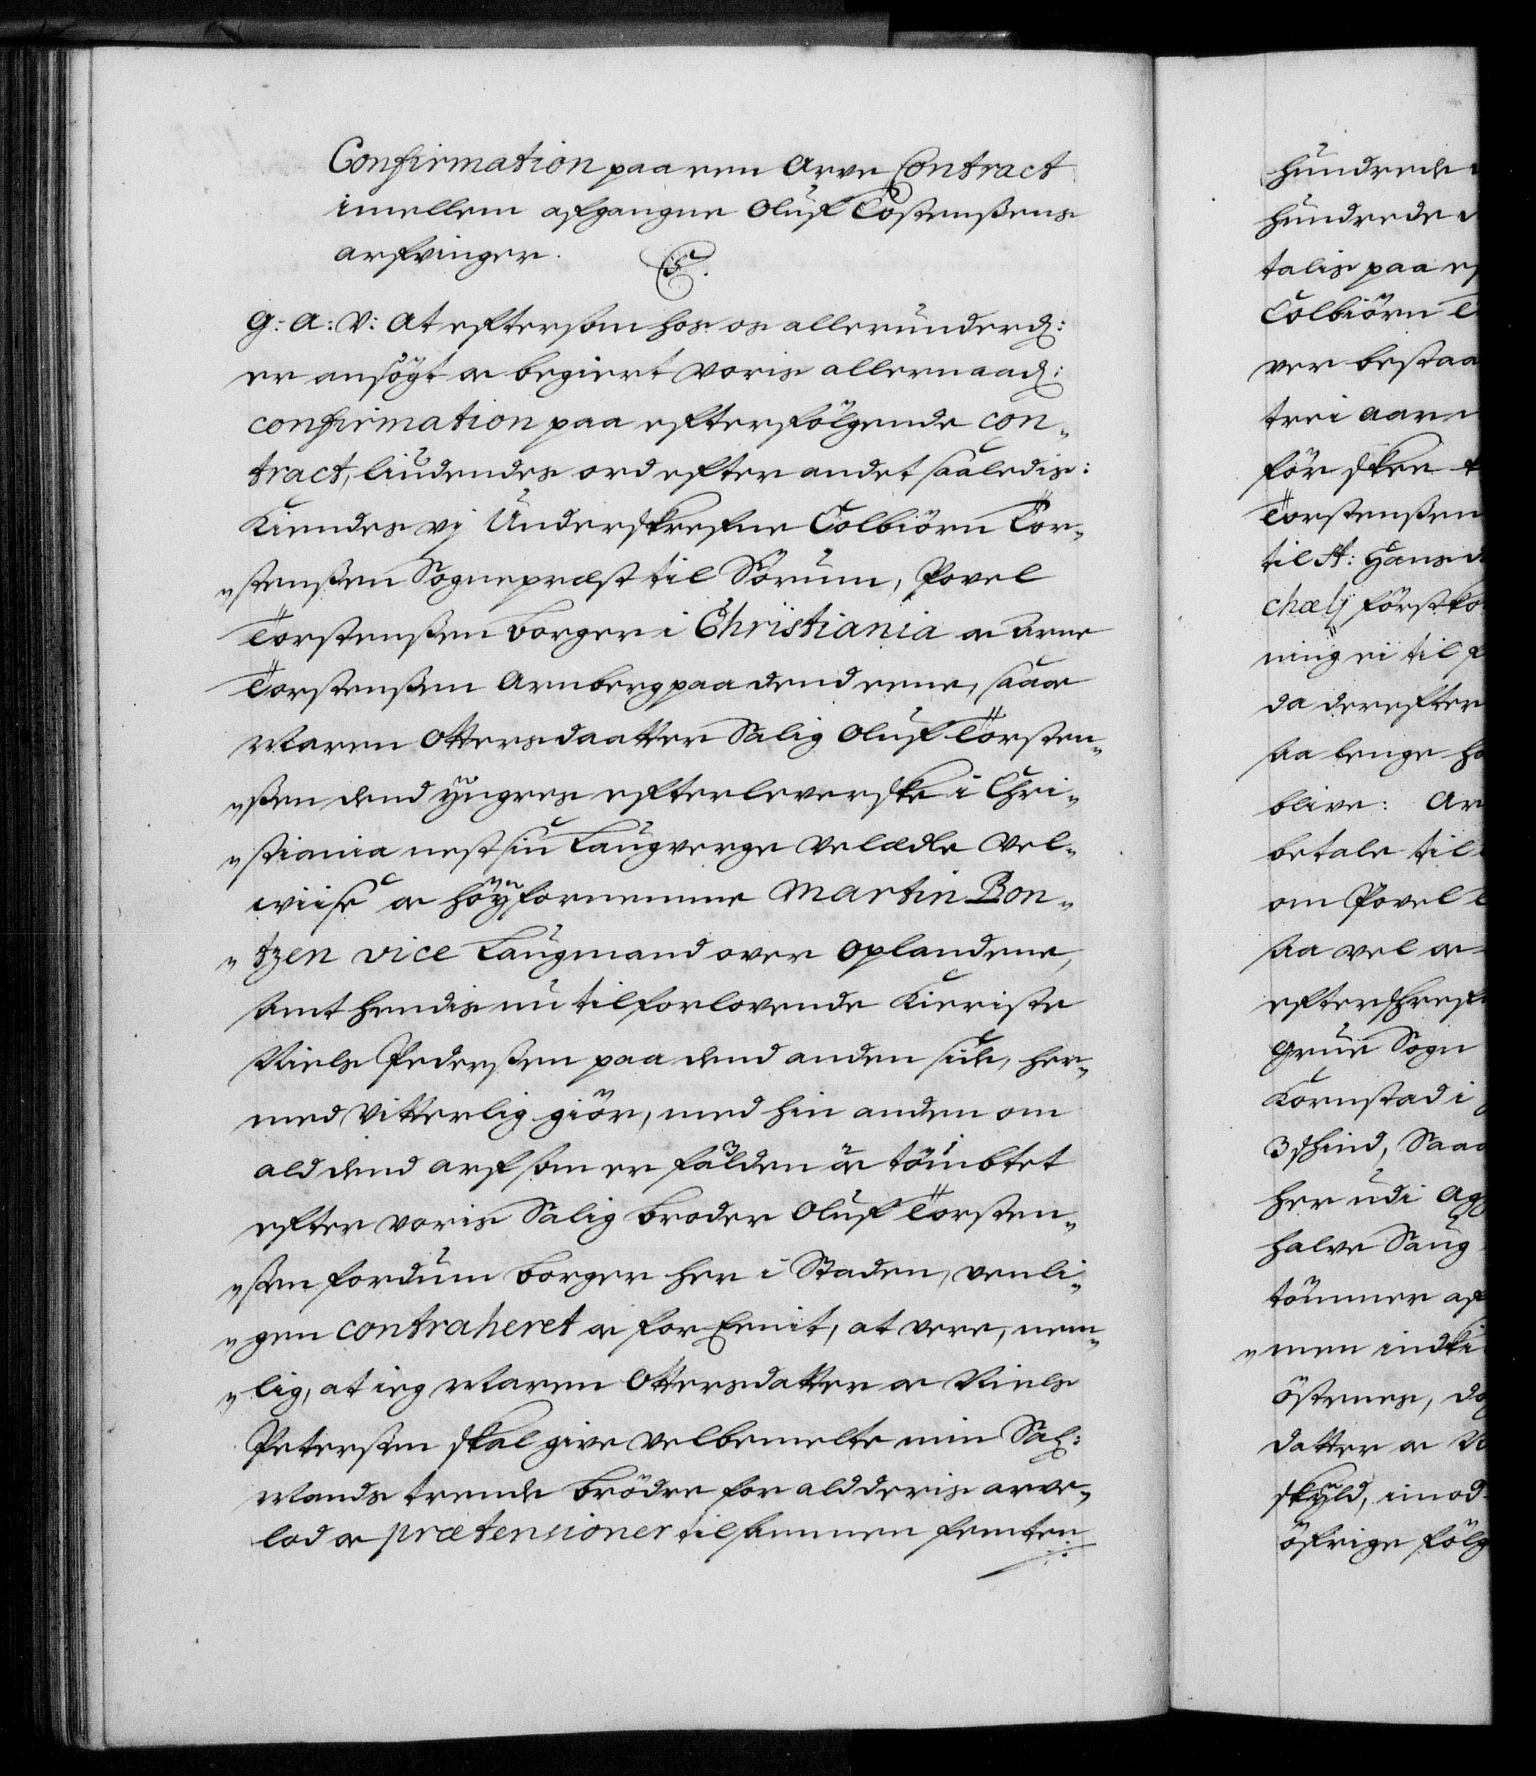 Confirmation paa een Arve Contract
imellem afgangne Oluf Tostenßens
arfvinger.
C5.
G: A: V: At eftersom hos os allerunderd:
er ansögt oc begiert voris allernaad:
confirmation paa efterfölgende con„
tract, liudendes ord efter andet saaledis:
Kiendes vi Underskrefne Colbiörn Tor„
„stenßen Sogneprest til Sörum, Povel
Torstenßen borger i Christiania oc Arne
Torstenßen Arnberg paa dend eene, saa oc
Maren Ottersdaatter Salig Oluf Torsten„
„ßen dend yngres efterleverske i Chri„
„stiania nest sin Laugverge Velædle Vel„
wiise oc höyfornemme Martin Bon„
„tzen vice Laugmand over Oplandene,
samt hendis nu tilforlovende Kieriste
Niels Pederßen paa dend anden side, her„
med Vitterlig giör, med hin anden om
ald dend arf som er falden oc tömbtet
efter voris Salig broder Oluf Torsten„
„ßen fordum borger her i Staden, venli„
„gen contraheret oc foreenit, at vere, nem„
„lig, at ieg Maren Ottersdatter oc Niels
Peterßen skal give velbemelte min Sal:
Mands trende brödre for ald deris arve„
lod oc prætensioner tilsammen femten
hundrede
hundrede
talis paa
Colbiörn T
ver bestaa
trei aar
för skee
Torstenßen
til St: Hans
chæly först
ning ei til
da derefter
saa lenge
blive: Ar
betale til
om Povel
saa vel oc
efterskref
Grue Sogn
Kornstad i
3 skind, Saa
her udi Agg
halve Saug
tömmer af
„men indki
östenes,
datter oc
skyld, imod
öfrige fölg